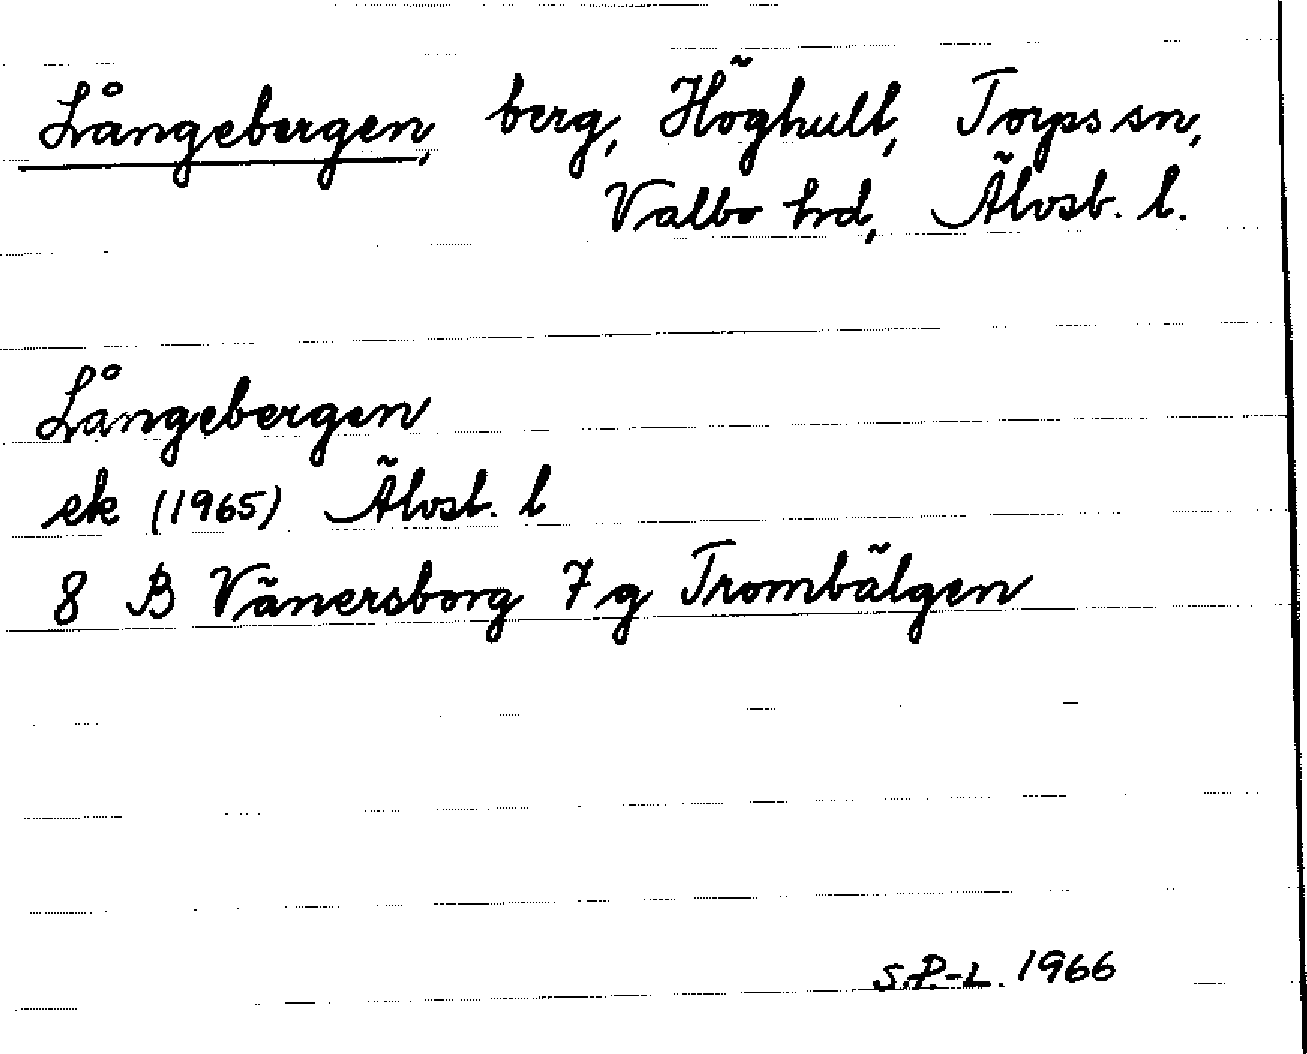 Långebergen, berg, Höghult, Torps sn,
Valbo hrd, Älvsb. l.
Långebergen
ek (1965) Älvsb. l
8 B Vänersborg 7 g Trombälgen
S.P.-L. 1966